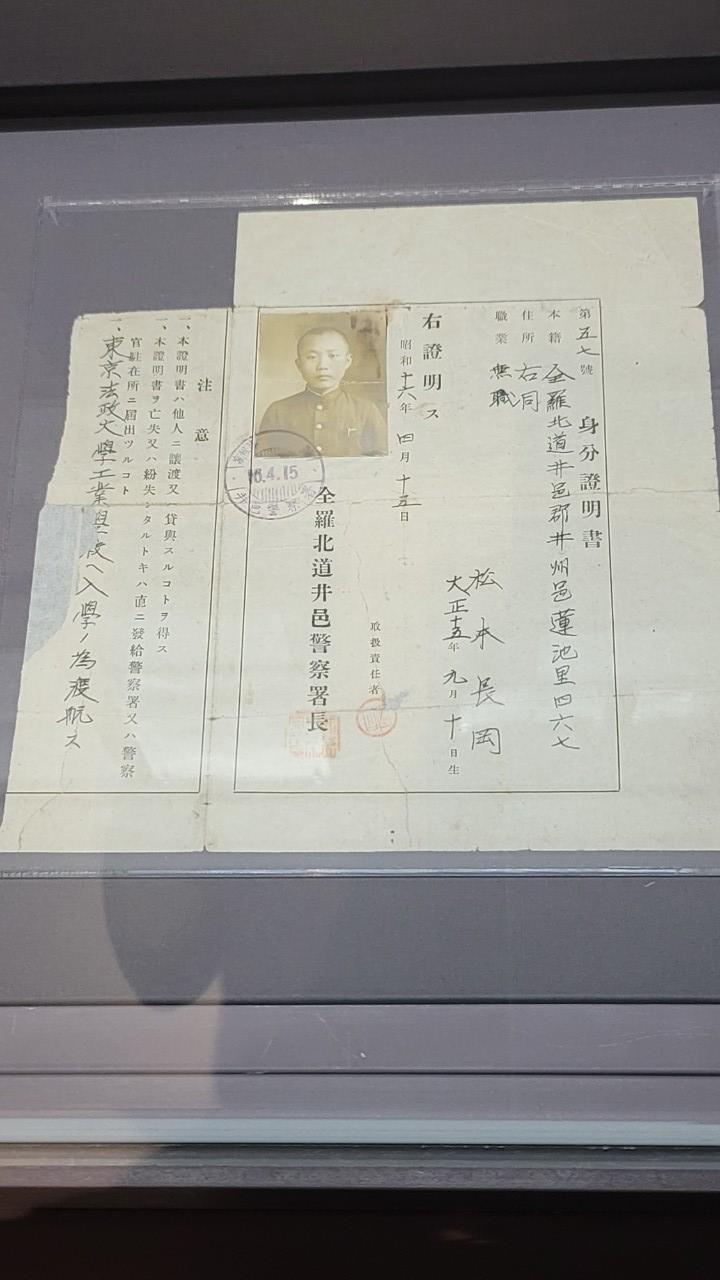 第五七號
身分證明書
本籍 全羅北道井邑郡井州邑蓮池里四六七
住所 右同
職業 無職
松本長岡
大正十五年九月十日生
右證明ス
昭和十六年四月十五日
取扱責任者
全羅北道井邑警察署長
16.4.15
注意
一、本證明書ハ他人ニ讓渡又ハ貸與スルコトヲ得ス
一、本證明書ヲ亡失又ハ紛失シタルトキハ直ニ發給警察署又ハ警察
官駐在所ニ屆出ツルコト
一、東京法政大學工業 校ヘ入學ノ為渡航ス